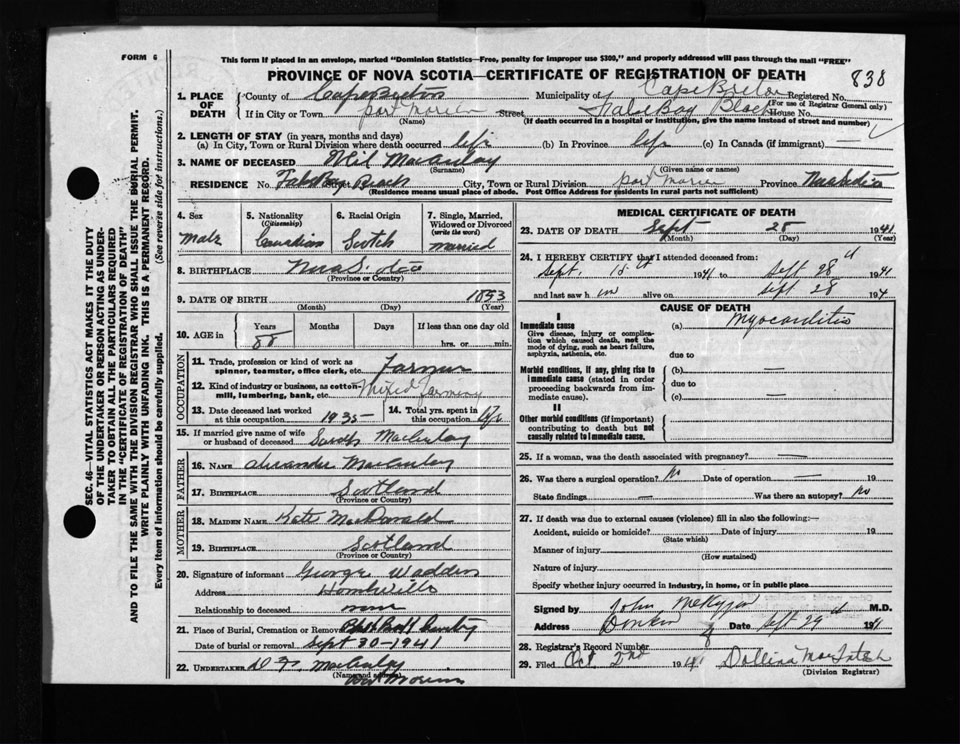 FORM 6
This form if placed in an envelope, marked "Dominion Statistics—Free, penalty for improper use $300," and properly addressed will pass through the mail "FREE"
PROVINCE OF NOVA SCOTIA—CERTIFICATE OF REGISTRATION OF DEATH
838
1. PLACE OF DEATH
County of Cape Breton Municipality of Cape Breton Registered No.
(For use of Registrar General only)
If in City or Town Port Morien Street False Bay Beach House No.
(Name) (If death occurred in a hospital or institution, give the name instead of street and number)
2. LENGTH OF STAY (in years, months and days)
(a) In City, Town or Rural Division where death occurred life (b) In Province life (c) In Canada (if immigrant) —
3. NAME OF DECEASED Neil Macaulay
(Surname) (Given name or names)
RESIDENCE No. False Bay Street Beach City, Town or Rural Division Port Morien Province Nova Scotia
(Residence means usual place of abode. Post Office Address for residents in rural parts not sufficient)
4. Sex
Male
5. Nationality (Citizenship)
Canadian
6. Racial Origin
Scotch
7. Single, Married, Widowed or Divorced (write the word)
married
8. BIRTHPLACE Nova Scotia
(Province or Country)
9. DATE OF BIRTH 1853
(Month) (Day) (Year)
10. AGE in Years Months Days If less than one day old
88 hrs. or min.
OCCUPATION
11. Trade, profession or kind of work as spinner, teamster, office clerk, etc. Farmer
12. Kind of industry or business, as cotton-mill, lumbering, bank, etc. Mixed Farming
13. Date deceased last worked at this occupation 1935
14. Total yrs. spent in this occupation life
15. If married give name of wife or husband of deceased Sarah MacAulay
FATHER
16. NAME Alexander MacAulay
17. BIRTHPLACE Scotland
(Province or Country)
MOTHER
18. MAIDEN NAME Kate MacDonald
19. BIRTHPLACE Scotland
(Province or Country)
20. Signature of informant George Wadden
Address
Relationship to deceased none
21. Place of Burial, Cremation or Removal
Date of burial or removal Sept 30-1941
22. UNDERTAKER MacAulay
(Name and address)
Port Morien
MEDICAL CERTIFICATE OF DEATH
23. DATE OF DEATH Sept 28 1941
(Month) (Day) (Year)
24. I HEREBY CERTIFY that I attended deceased from:
Sept. 1941 to Sept 28th 1941
and last saw him alive on Sept 28 194
CAUSE OF DEATH
I
Immediate cause
Give disease, injury or complication which caused death, not the mode of dying, such as heart failure, asphyxia, asthenia, etc.
(a) Myocarditis
due to
Morbid conditions, if any, giving rise to immediate cause (stated in order proceeding backwards from immediate cause).
(b) —
due to
(c) —
II
Other morbid conditions (if important) contributing to death but not causally related to immediate cause.
25. If a woman, was the death associated with pregnancy? —
26. Was there a surgical operation? No Date of operation —
State findings — Was there an autopsy? No
27. If death was due to external causes (violence) fill in also the following:—
Accident, suicide or homicide? Date of injury 19
(State which)
Manner of injury
(How sustained)
Nature of injury
Specify whether injury occurred in industry, in home, or in public place
Signed by John M.D.
Address Donkin Date Sept 29th 1941
28. Registrar's Record Number 8
29. Filed Oct 2nd 1941 Dollina MacIntosh
(Division Registrar)
SEC. 46—VITAL STATISTICS ACT MAKES IT THE DUTY
OF THE UNDERTAKER OR PERSON ACTING AS UNDER-
TAKER TO OBTAIN ALL THE PARTICULARS REQUIRED
IN THE "CERTIFICATE OF REGISTRATION OF DEATH"
AND TO FILE THE SAME WITH THE DIVISION REGISTRAR WHO SHALL ISSUE THE BURIAL PERMIT.
WRITE PLAINLY WITH UNFADING INK. THIS IS A PERMANENT RECORD.
Every item of information should be carefully supplied. (See reverse side for instructions.)